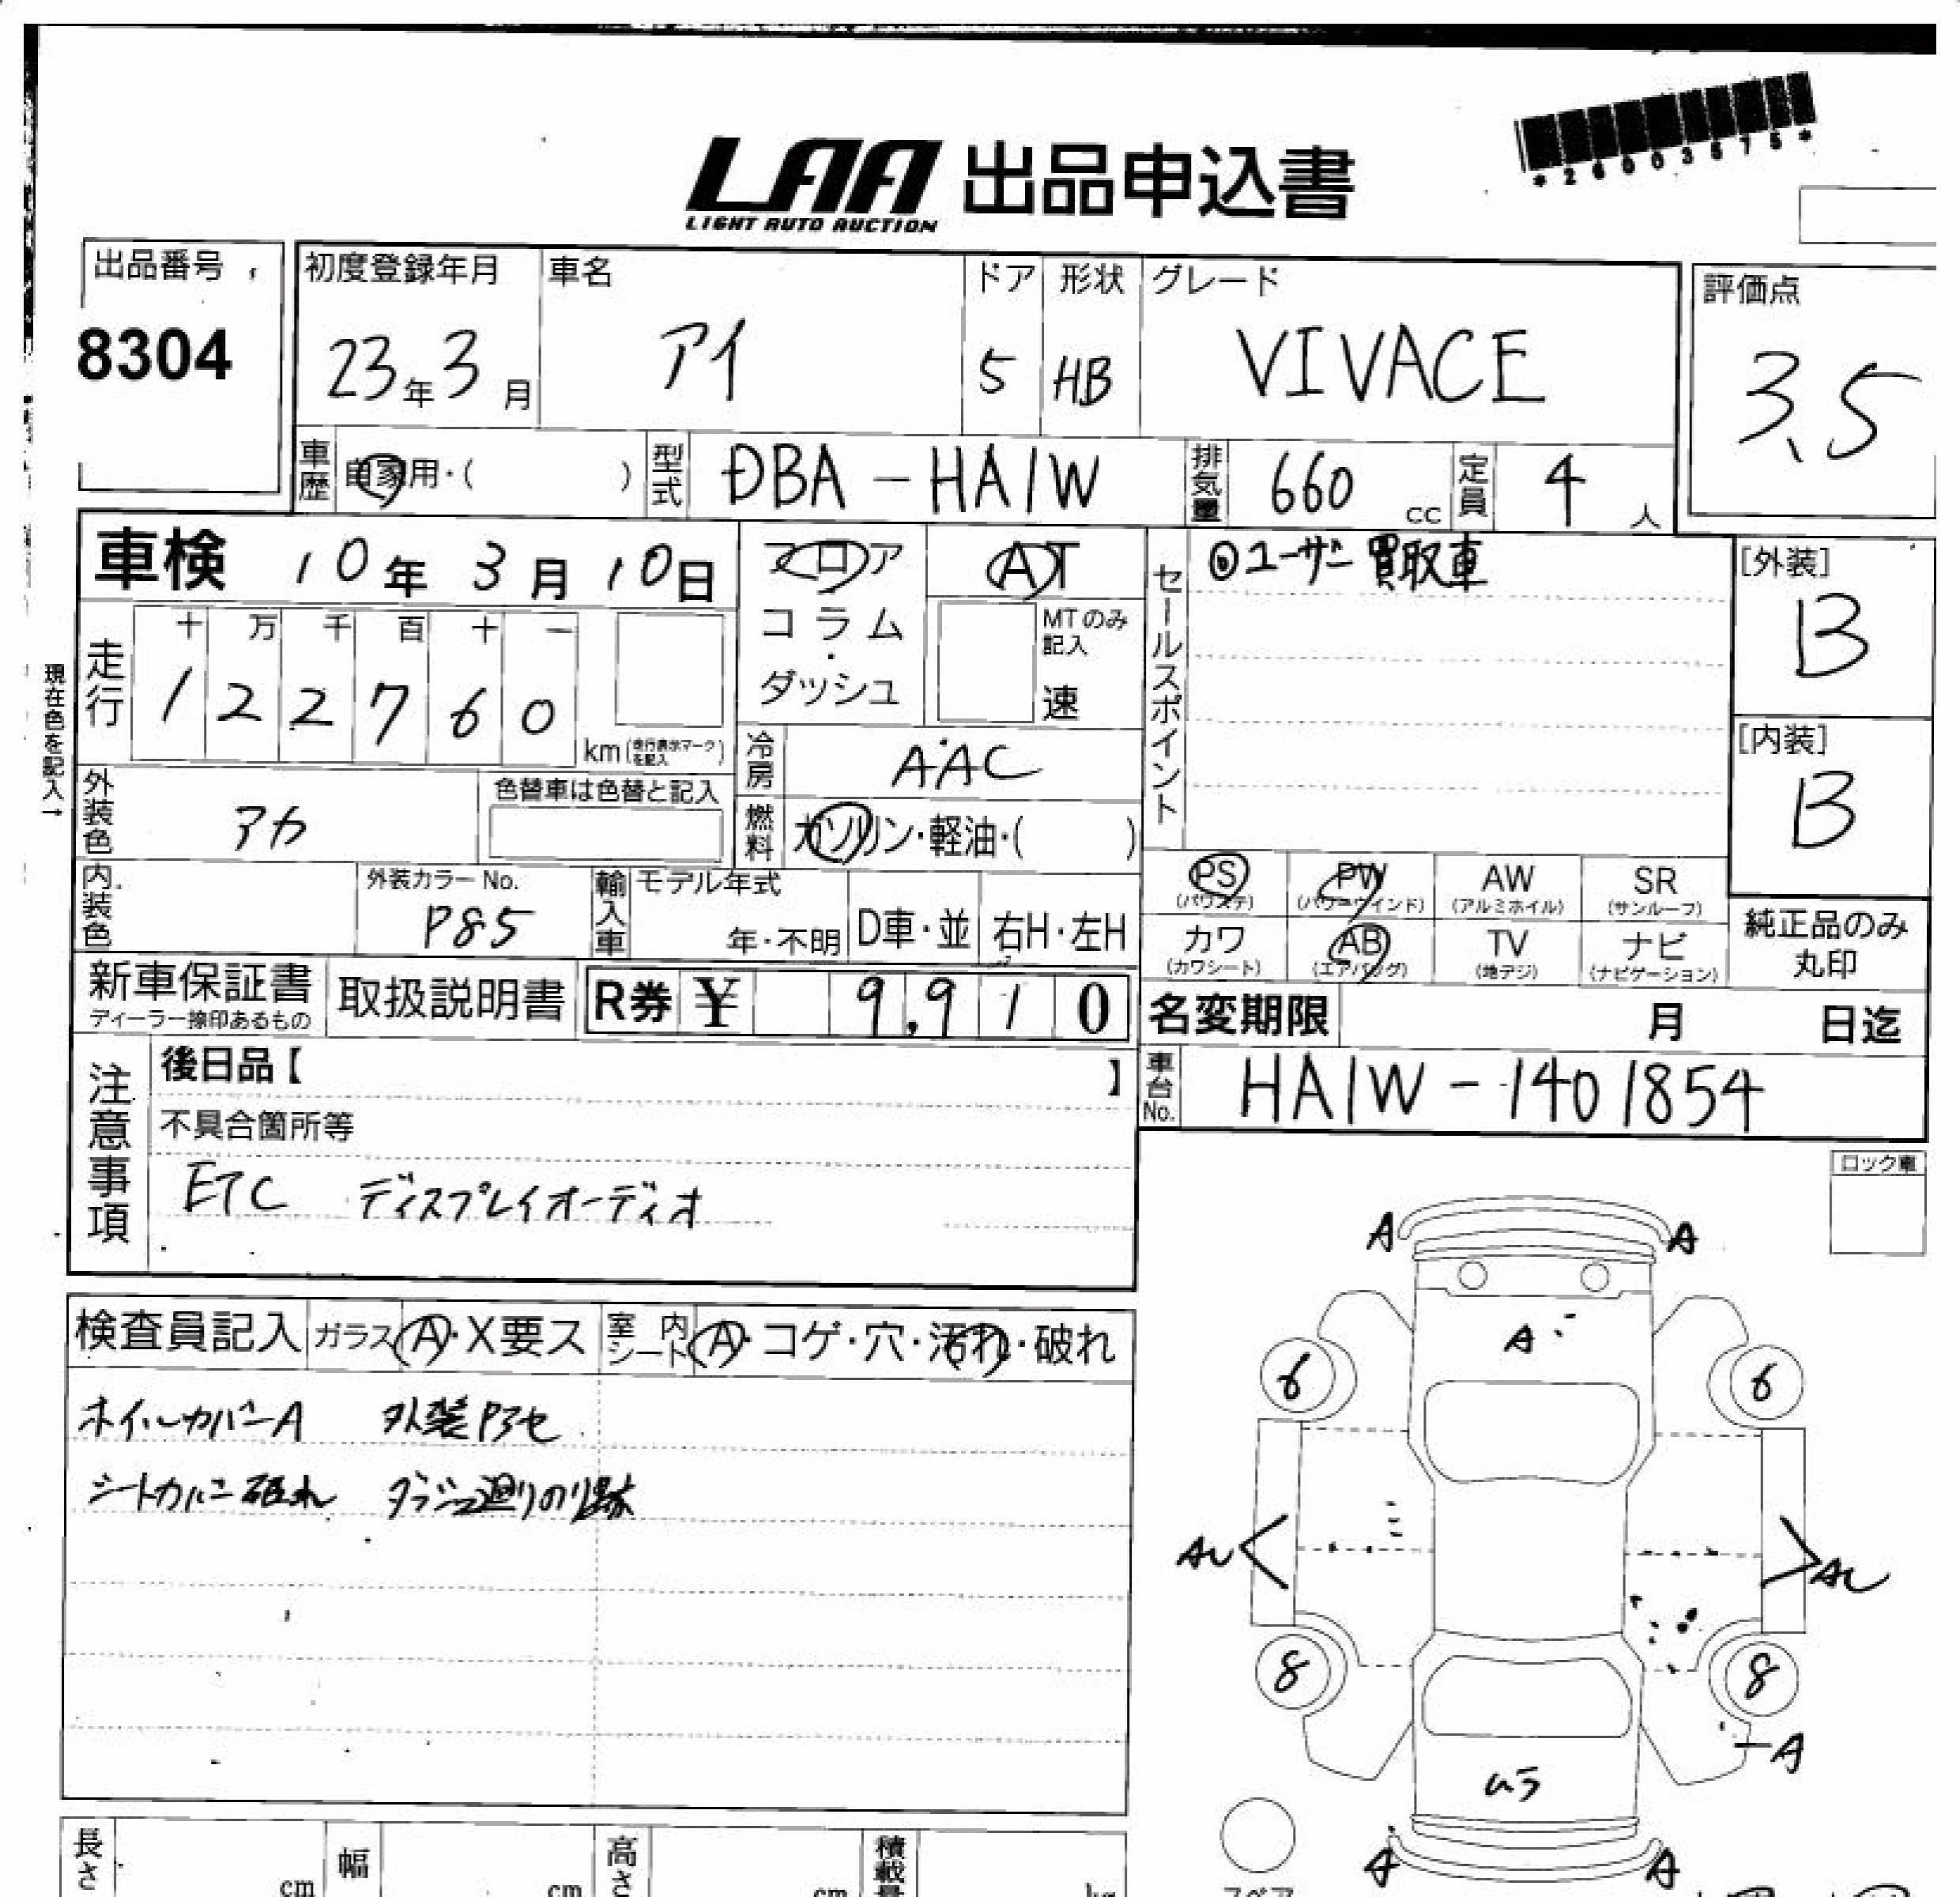 *26003575*
LAA 出品申込書
LIGHT AUTO AUCTION
出品番号 初度登録年月 車名 ドア 形状 グレード 評価点
8304 23年3月 アイ 5 HB VIVACE 3.5
車歴 自家用・( ) 型式 DBA-HA1W 排気量 660 cc 定員 4 人
車検 10年3月10日 フロア AT セールスポイント ◎ユーザー買取車 [外装]
B
走行 十 万 千 百 十 一 コラム・ダッシュ MTのみ記入 速
1 2 2 7 6 0 km(走行表示マークを記入)
現在色を記入→
[内装]
B
冷房 AAC
外装色 アカ 色替車は色替と記入
燃料 ガソリン・軽油・( )
内装色 外装カラーNo. P85 輸入車 モデル年式 年・不明 D車・並 右H・左H
PS (パワステ) PW (パワーウインド) AW (アルミホイル) SR (サンルーフ)
カワ (カワシート) AB (エアバッグ) TV (地デジ) ナビ (ナビゲーション)
純正品のみ丸印
新車保証書 ディーラー捺印あるもの 取扱説明書 R券 ¥ 9,910 名変期限 月 日迄
注意事項 後日品【 】 車台No. HA1W-1401854
不具合箇所等
ETC ディスプレイオーディオ
ロック車
検査員記入 ガラス A・X要ス 室内シート A・コゲ・穴・汚れ・破れ
ホイルカバーA 外装P3セ
シートカバー破れ ダッシュ廻りのり跡
A A
A
6 6
AU AU
8 8
A
ムラ
A A
長さ cm 幅 cm 高さ cm 積載量 kg スペア